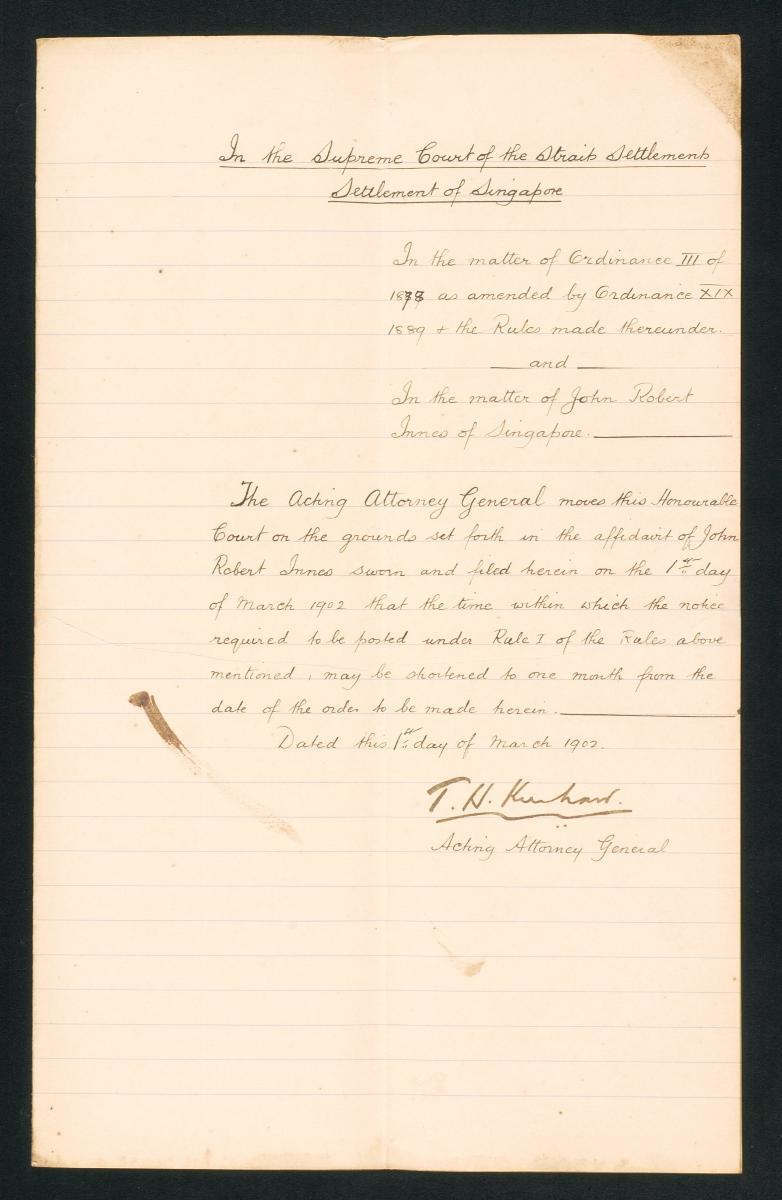 In the Supreme Court of the Straits Settlements
Settlement of Singapore
In the matter of Ordinance III of
1878 as amended by Ordinance XIX
1889 + the Rules made thereunder.
and
In the matter of John Robert
Innes of Singapore.
The Acting Attorney General moves this Honourable
Court on the grounds set forth in the affidavit of John
Robert Innes sworn and filed herein on the 1st day
of March 1902 that the time within which the notice
required to be posted under Rule I of the Rules above
mentioned, may be shortened to one month from the
date of the order to be made herein.
Dated this 1st day of March 1902.
T. H. Kershaw.
Acting Attorney General